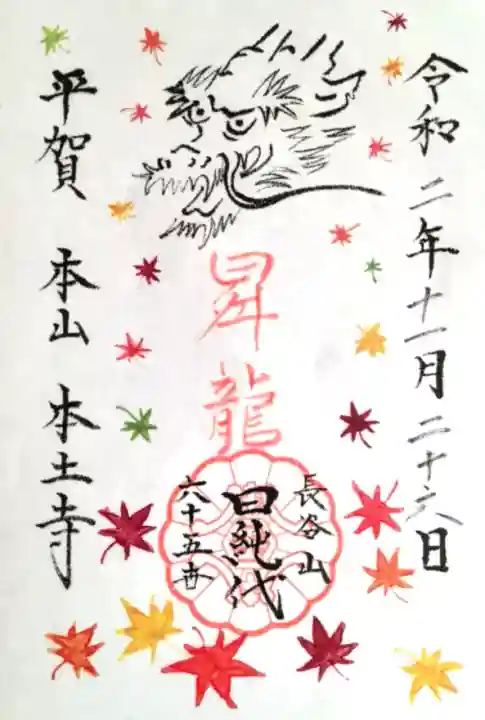 令和二年十一月二十六日
昇龍
長谷山
日純代
六十五世
平賀 本山 本土寺